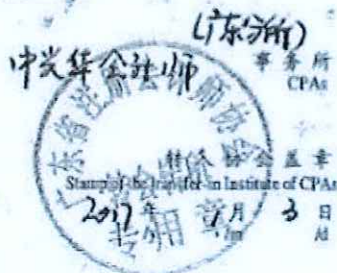 (广东分所)
中兴华会计师
事务所
CPAs
广东省注册会计师协会
转入协会盖章
Stamp of the transfer-in Institute of CPAs
2017年 月3日
/m /d
专用章